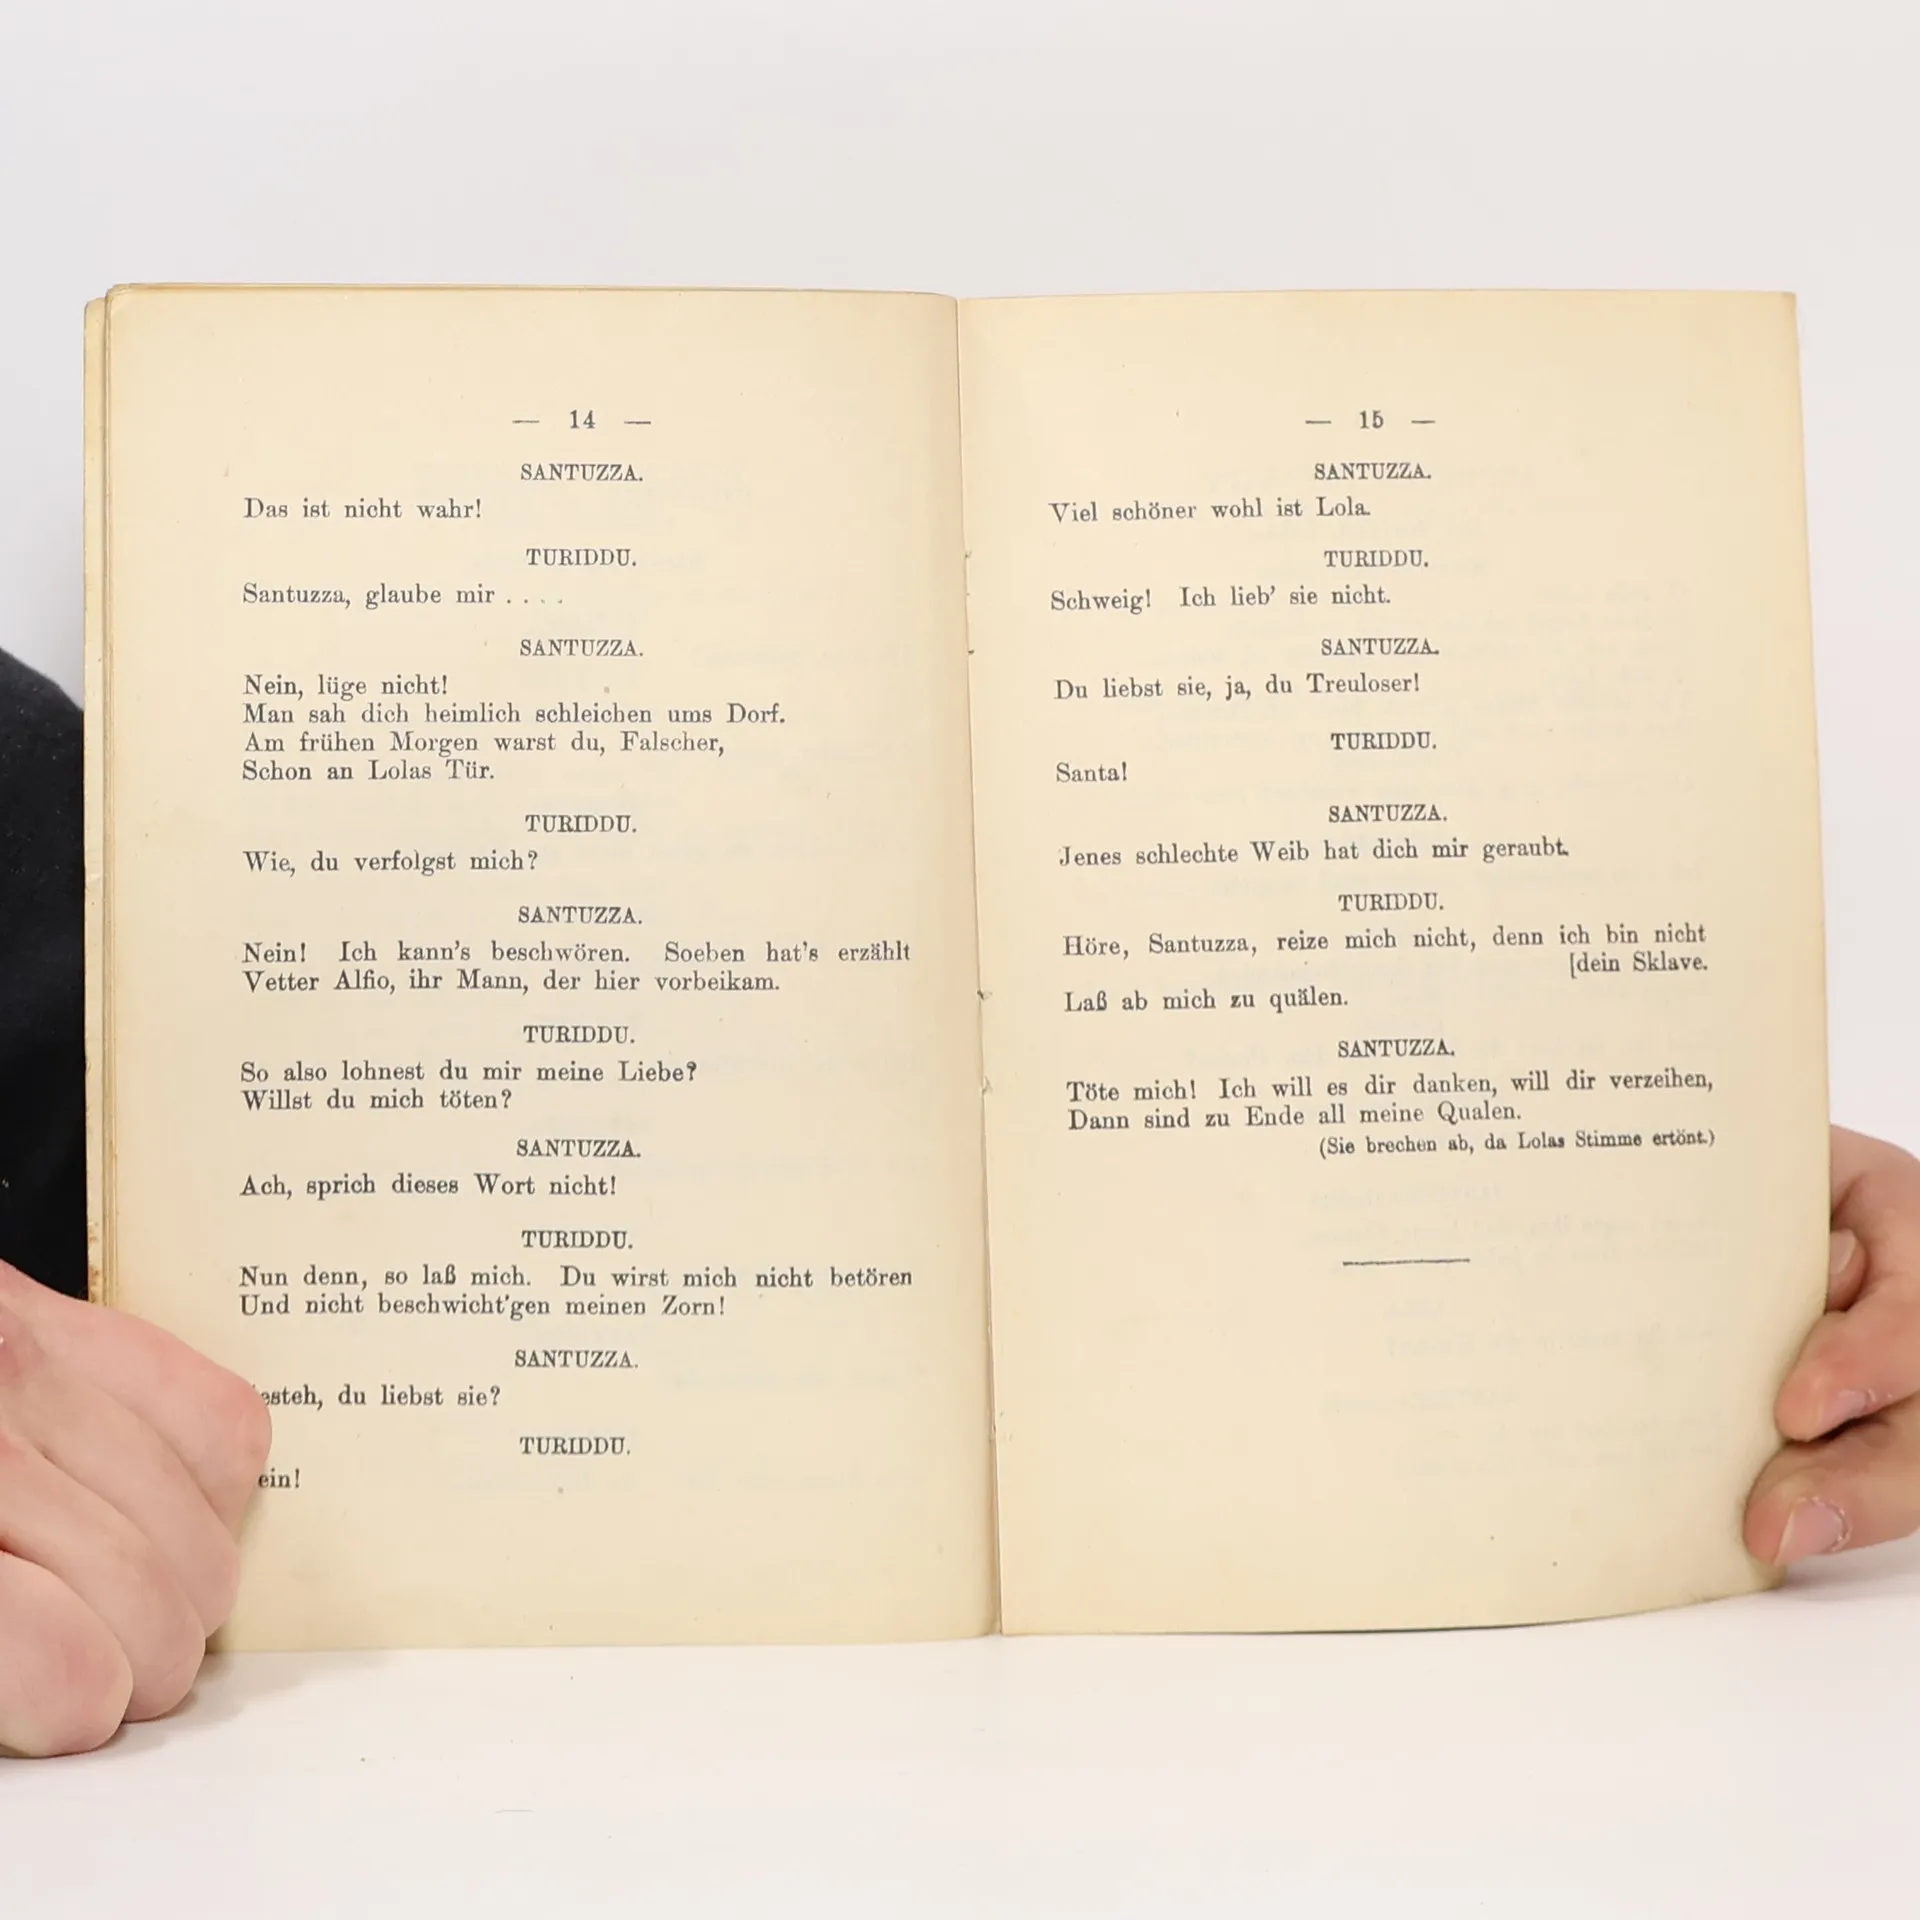 — 14 —
SANTUZZA.
Das ist nicht wahr!
TURIDDU.
Santuzza, glaube mir . . . .
SANTUZZA.
Nein, lüge nicht!
Man sah dich heimlich schleichen ums Dorf.
Am frühen Morgen warst du, Falscher,
Schon an Lolas Tür.
TURIDDU.
Wie, du verfolgst mich?
SANTUZZA.
Nein! Ich kann's beschwören. Soeben hat's erzählt
Vetter Alfio, ihr Mann, der hier vorbeikam.
TURIDDU.
So also lohnest du mir meine Liebe?
Willst du mich töten?
SANTUZZA.
Ach, sprich dieses Wort nicht!
TURIDDU.
Nun denn, so laß mich. Du wirst mich nicht betören
Und nicht beschwicht'gen meinen Zorn!
SANTUZZA.
esteh, du liebst sie?
TURIDDU.
ein!
— 15 —
SANTUZZA.
Viel schöner wohl ist Lola.
TURIDDU.
Schweig! Ich lieb' sie nicht.
SANTUZZA.
Du liebst sie, ja, du Treuloser!
TURIDDU.
Santa!
SANTUZZA.
Jenes schlechte Weib hat dich mir geraubt.
TURIDDU.
Höre, Santuzza, reize mich nicht, denn ich bin nicht
[dein Sklave.
Laß ab mich zu quälen.
SANTUZZA.
Töte mich! Ich will es dir danken, will dir verzeihen,
Dann sind zu Ende all meine Qualen.
(Sie brechen ab, da Lolas Stimme ertönt.)